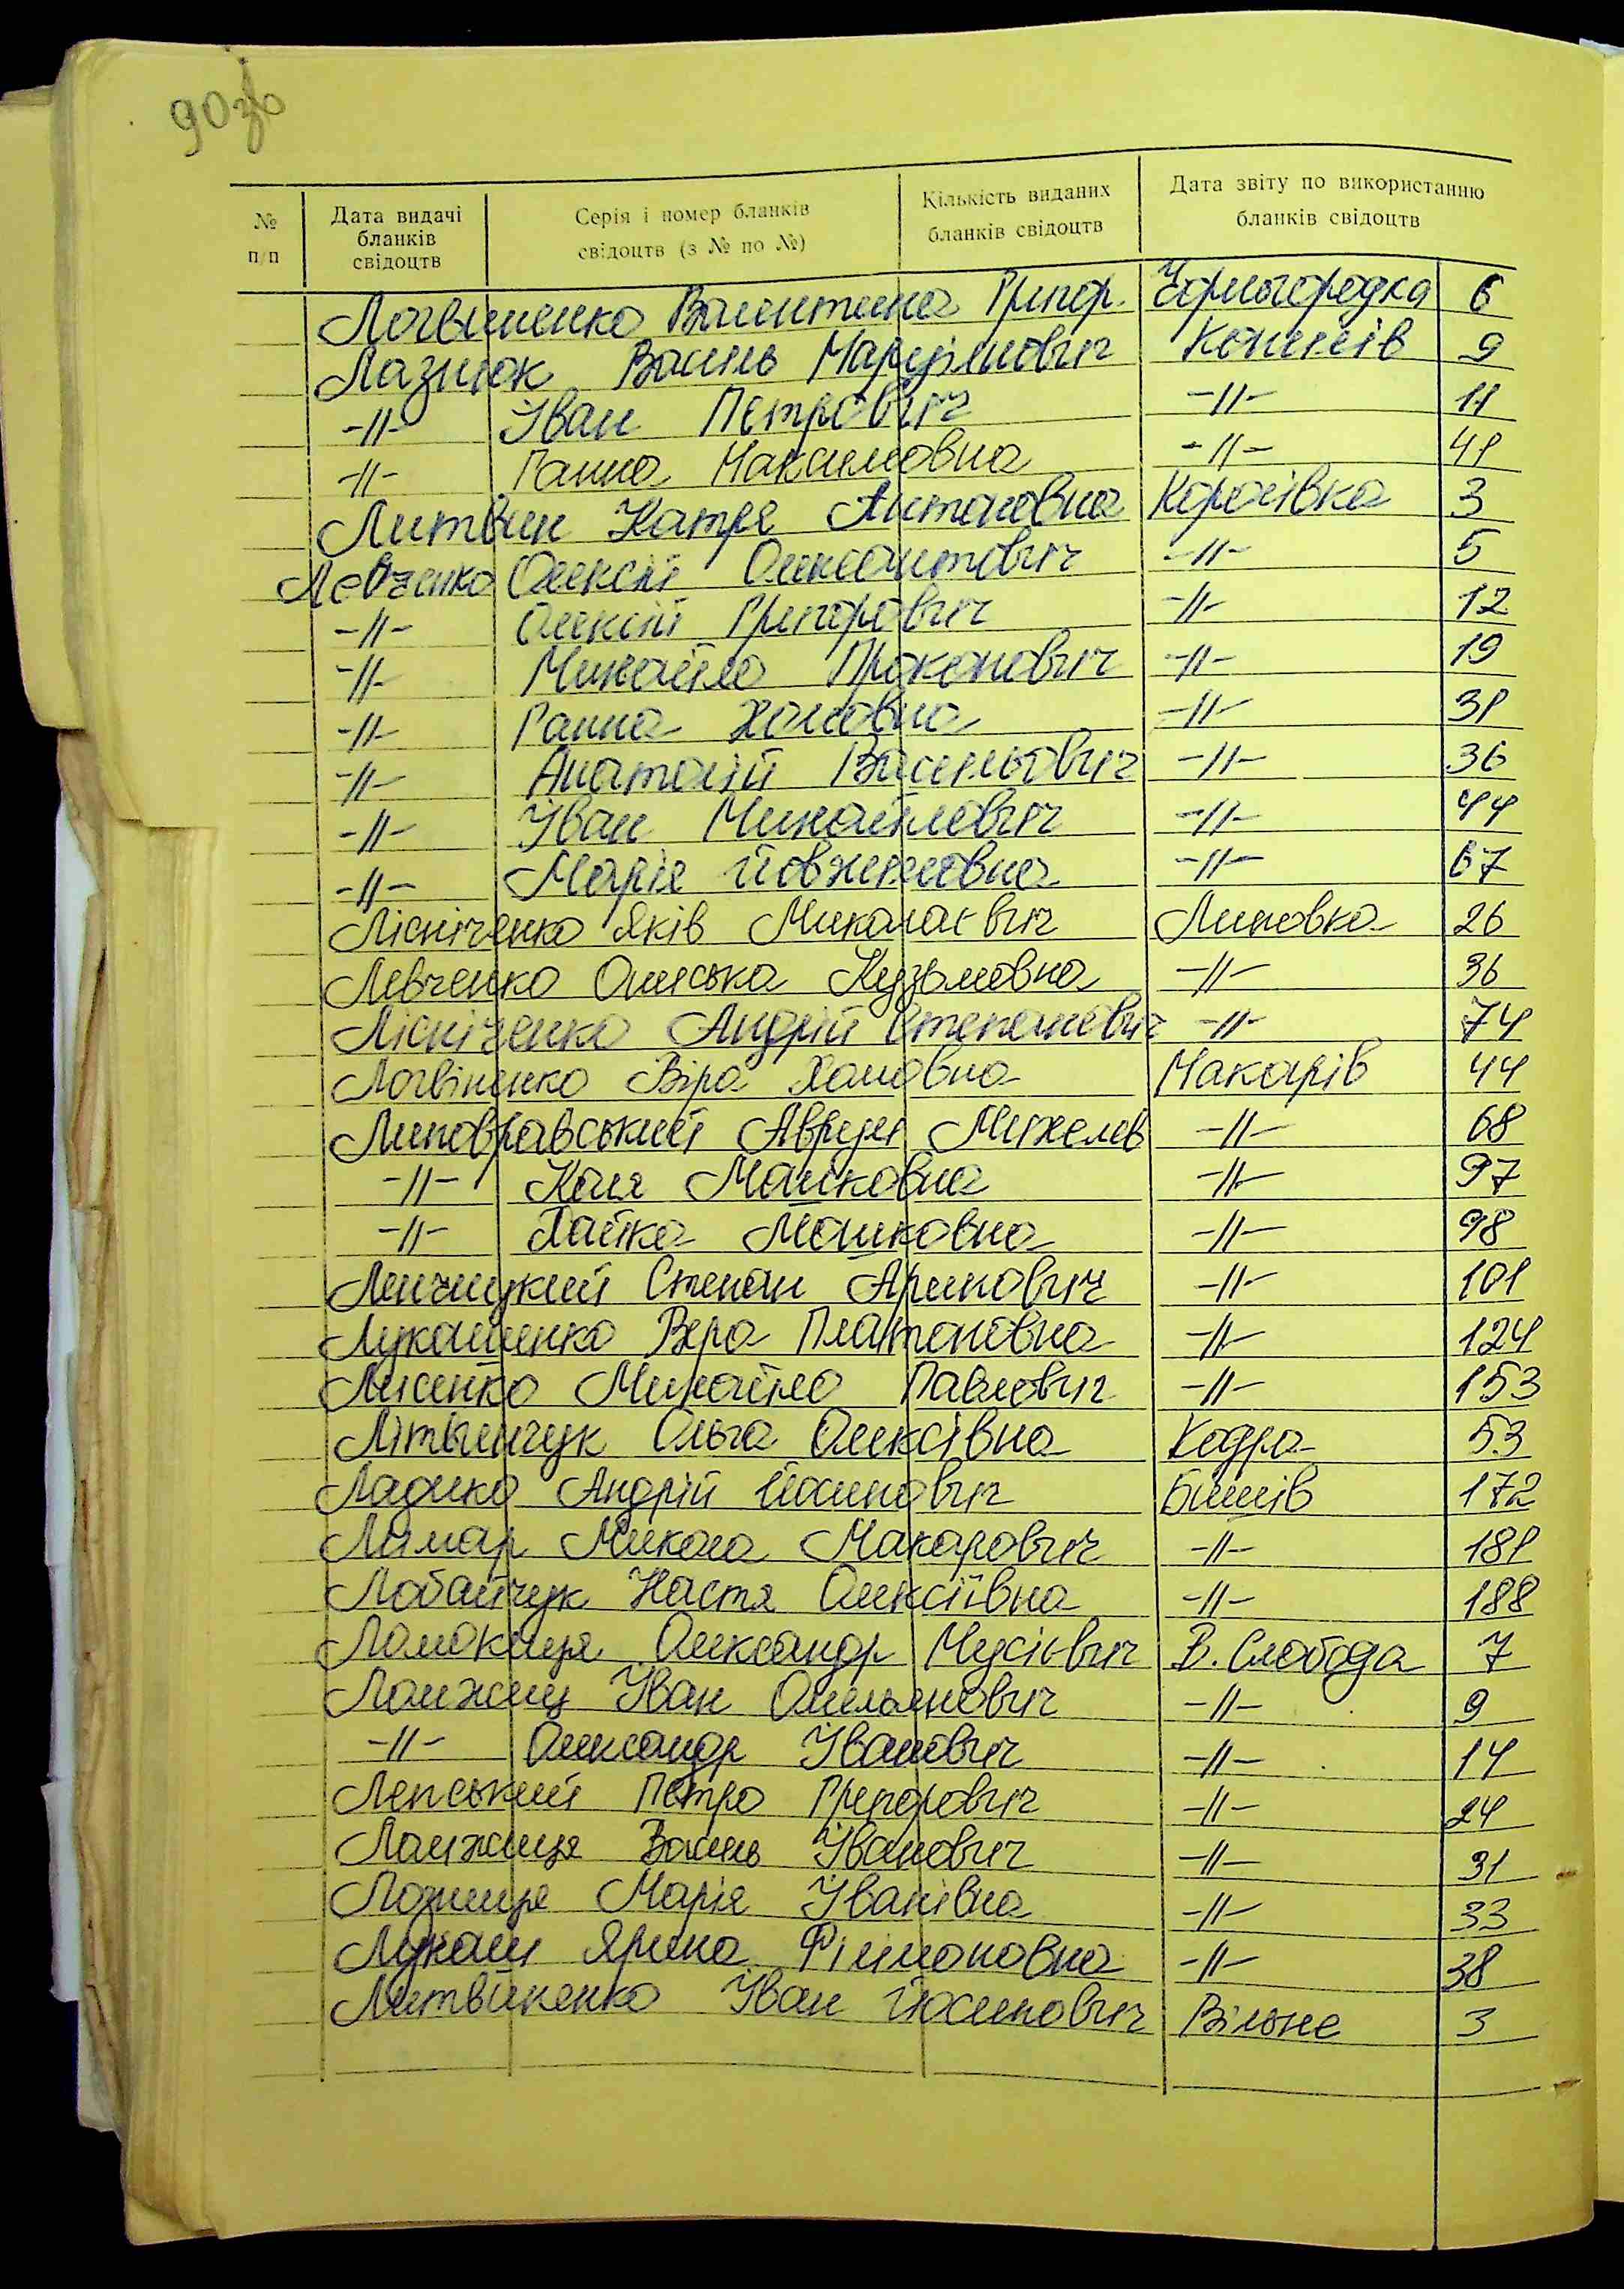 90зв
№ п/п Дата видачі бланків свідоцтв Серія і номер бланків свідоцтв (з № по №) Кількість виданих бланків свідоцтв Дата звіту по використанню бланків свідоцтв
Логвиненко Валентина Григор. Чорногородка 6
Лазнюк Василь Марціянович Копилів 9
-//- Іван Петрович -//- 11
-//- Ганна Максимовна -//- 41
Литвин Катря Антоновна Королівка 3
Левченко Олексій Олександтович -//- 5
-//- Олексій Григорович -//- 12
-//- Михайло Прокопович -//- 19
-//- Ганна Хомовна -//- 31
-//- Анатолій Васильович -//- 36
-//- Іван Михайлович -//- 44
-//- Марія Йовхимовна -//- 67
Лісніченко Яків Миколаєвич Липовка 26
Левченко Олиська Кузьмовна -//- 36
Лісніченко Андрій Степанович -//- 74
Логвіненко Віра Хомовна Макарів 44
Липовравський Аврум Михелев -//- 68
-//- Каля Мошковна -//- 97
-//- Хайка Мошковна -//- 98
Ленчицкий Степан Арипович -//- 101
Лукашенко Вера Платоновна -//- 124
Лисенко Михайло Павлович -//- 153
Літвинчук Ольга Олексівна Кодра 53
Ладико Андрій Йосипович Бишів 172
Лимар Микола Макарович -//- 181
Лобайчук Настя Олексіївна -//- 188
Ломокиця Олександр Мусієвич В. Слобода 7
Ломжиц Іван Омельянович -//- 9
-//- Олександр Іванович -//- 14
Лепський Петро Григорович -//- 24
Ломжиця Василь Іванович -//- 31
Лозниця Марія Іванівна -//- 33
Лукаш Ярина Філимоновна -//- 38
Литвиненко Іван Йосипович Вільне 3